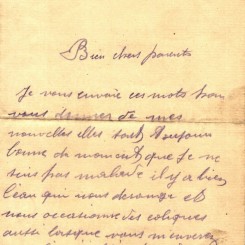 Bien chers parents
Je vous envoie ces mots pour
vous donner de mes
nouvelles elles sont toujour
bonne du moment que je ne
suis pas malade il y a bien
l'eau qui nous derange et
nous occasionne des coliques
aussi lorsque vous m'enverez